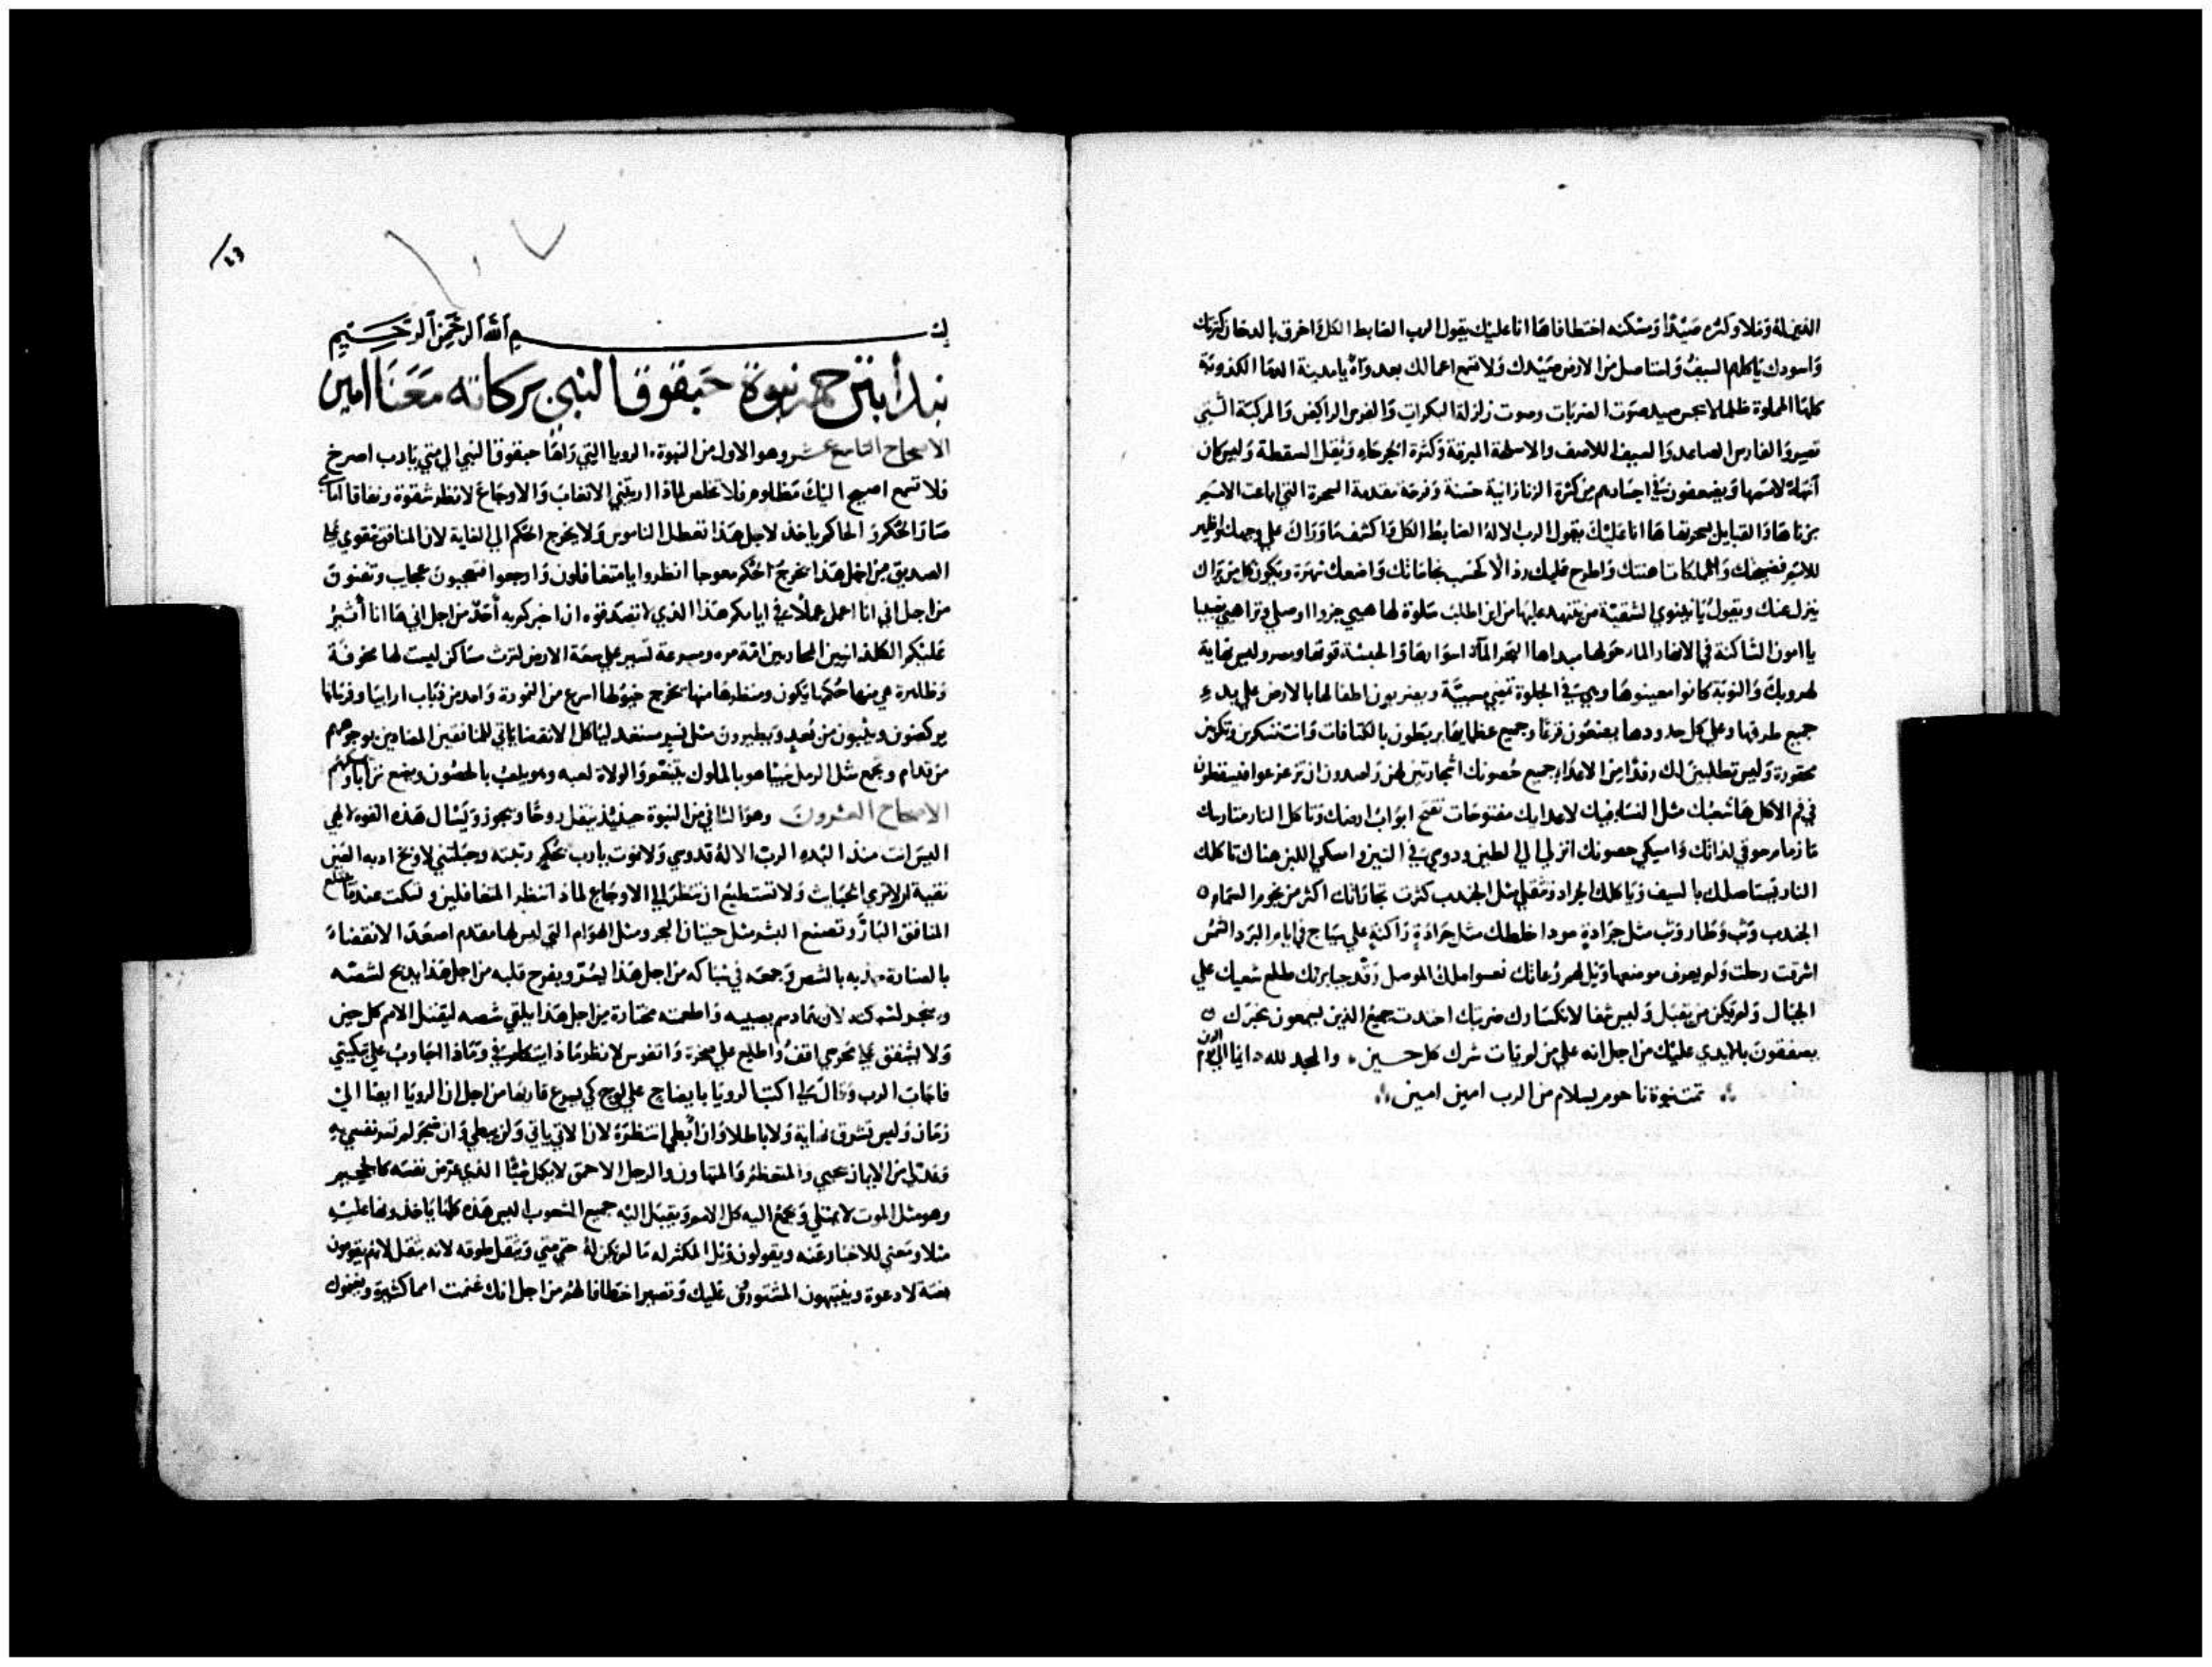 الغنيمة له وملا وكره صيدا ومسكنه اختطافا ها انا عليك يقول الرب الضابط الكل واحرق بالدخان كثرتك
واسودك ياكلهم السيف واستاصل من الارض صيدك ولا تسمع اعمالك بعد واه يا مدينة الدما الكذوبة
كلها المملوة ظلما لا يجس صيد صوت الضربات وصوت زلزلة البكرات والفرس الراكض والمركبة التي
تصير والفارس الصاعد والسيف اللاصف والاسلحة المبرقة وكثرة الجرحاء وثقل السقطة وليس كان
لامتها ويضعفون في اجسادهم من كثرة الزنا زانية حسنة وفرحة مقدمة السحرة التي اباعت الامم
بزناها والقبايل بسحرتها ها انا عليك يقول الرب الاله الضابط الكل واكشف ما وراك علي وجهك واظهر
للامم فضيحتك والمملكات اهنتك واطرح عليك رذالا كحسب نجاساتك واضعك شهرة ويكون كل من يراك
ينزل عنك ويقول يا نينوي الشقية من يتنهد عليها من اين اطلب سلوة لها هيي جزوا اوصلي وتراهيي نصيبا
يا امون الساكنة في الانهار الماء حولها مبداها البحر الماء اسوارها والحبشة قوتها ومصر وليس نهاية
لهروبك والنوبة كانوا معينوها وهي في الجلوة تمضي مسبية ويضربون اطفالها بالارض علي بدء
جميع طرقها وعلي كل حدودها يضعون قرعا وجميع عظمايها يربطون بالكتافات وانت تسكرين وتكونين
محقورة وليس تطلبين لك رفدا من الاعداء جميع حصونك اشجار تين لهن راصدون ان تزعزعوا فيسقطون
في فم الاكل ها شعبك مثل النساء فيك لاعدايك مفتوحات تفتح ابواب ارضك وتاكل النار متاريسك
النار تستاصلك بالسيف وياكلك الجراد وتثقلي مثل الجندب كثرت تجاراتك اكثر من نجوم السماء
الجندب وثب وطار وثب مثل جرادة اخلاطك مثل جرادة راكنة علي سياج في ايام البرد الشمس
اشرقت رحلت ولم يعرف موضعها ويل لهم رعاتك نعسوا ملك الموصل رقد جبابرتك طلع شعبك علي
الجبال ولم يكن من يقبل وليس شفا لانكسارك ضربتك احتدت جميع الذين يسمعون بخبرك
يصفقون بالايدي عليك من اجل انه علي من لم يات شرك كل حين والمجد لله دايما ابدا امين
تمت نبوة ناحوم بسلام من الرب امين امين
١٠٧
بسم الله الرحمن الرحيم
نبدا بشرح نبوة حبقوق النبي بركاته معنا امين
الاصحاح التاسع عشر وهو الاول من النبوة الرويا التي راها حبقوق النبي الي متي يا رب اصرخ
فلا تسمع اصيح اليك مظلوم فلا تخلص لماذا اريتني الاتعاب والاوجاع لانظر شقوة ونفاقا امامي
صار الحكم والحاكم ياخذ لاجل هذا تعطل الناموس ولا يخرج الحكم الي الغاية لان المنافق يتقوي علي
الصديق من اجل هذا يخرج الحكم معوجا انظروا يا متغافلون وارجعوا فتعجبون عجايب وتفنون
من اجل اني انا اعمل عملا في ايامكم هذا الذي لا تصدقوه ان اخبركم به احد من اجل اني ها انا اثير
عليكم الكلدانيين المحاربين امة مره ومسرعة تسير علي سعة الارض لترث مساكن ليست لها مخوفة
وظاهرة هي منها حكمها يكون ومنظرها منها يخرج خيولها اسرع من النمورة واحد من ذياب ارابيا وفرسانها
يركضون ويثبون من بعد ويطيرون مثل نسر مستعد لياكل الانقضا ياتي للمنافقين المضادين بوجوههم
من قدام ويجمع مثل الرمل سبيا هو بالملوك يتنعم والولاة لعبه وهو يلعب بالحصون ويضع ترابا
الاصحاح العشرون وهو الثاني من النبوة حينيذ ينقل روحا ويجوز ويسال هذه القوة لالهي
اليس انت منذ البدء الرب الاله قدوسي ولا نموت يا رب للحكم رتبته وجبلتني لاوبخ ادبه العين
نقية لا تري الخبايث ولا تستطيع ان تنظر الي الاوجاع لماذا تنظر المتغافلين وتسكت عندما يبلع
المنافق البار وتصنع البشر مثل حيتان البحر ومثل الهوام التي ليس لها مقدم اصعد الانقضاء
بالصنارة جذبه بالشص وجمعه في شباكه من اجل هذا يسر ويفرح قلبه من اجل هذا يذبح لشصه
ويبخر لشبكته لان بهم ادسم نصيبه واطعمته مختارة من اجل هذا يلقي شصه ليقتل الامم كل حين
ولا يشفق علي محرسي اقف واطلع علي صخرة واتفرس لانظر ماذا يتكلم في وماذا اجاوب علي تبكيتي
فاجاب الرب وقال لي اكتب الرويا بايضاح علي لوح كي يسرع قاريها من اجل ان الرويا ايضا الي
زمان وليس تشرق نهاية ولا باطلا وان ابطي انتظره لان الاتي ياتي ولن يبطي وان ضجر لم تسر نفسي به
وعدلي من الايمان يحيي والمتعظم والمتهاون والرجل الاحمق لا يكمل شيا الذي عرض نفسه كالجحيم
وهو مثل الموت لا يمتلي ويجمع اليه كل الامم ويقبل اليه جميع الشعوب اليس هذه كلها ياخذونها عليه
مثلا ومعني للاخبار عنه ويقولون ويل المكثر له ما لم يكن له حتي متي ويثقل طوقه لانه يثقل لانهم يقومون
بغتة لادعوة وينتبهون المشتورون عليك وتصير اختطافا لهم من اجل انك غنمت امما كثيرة ويغنموك